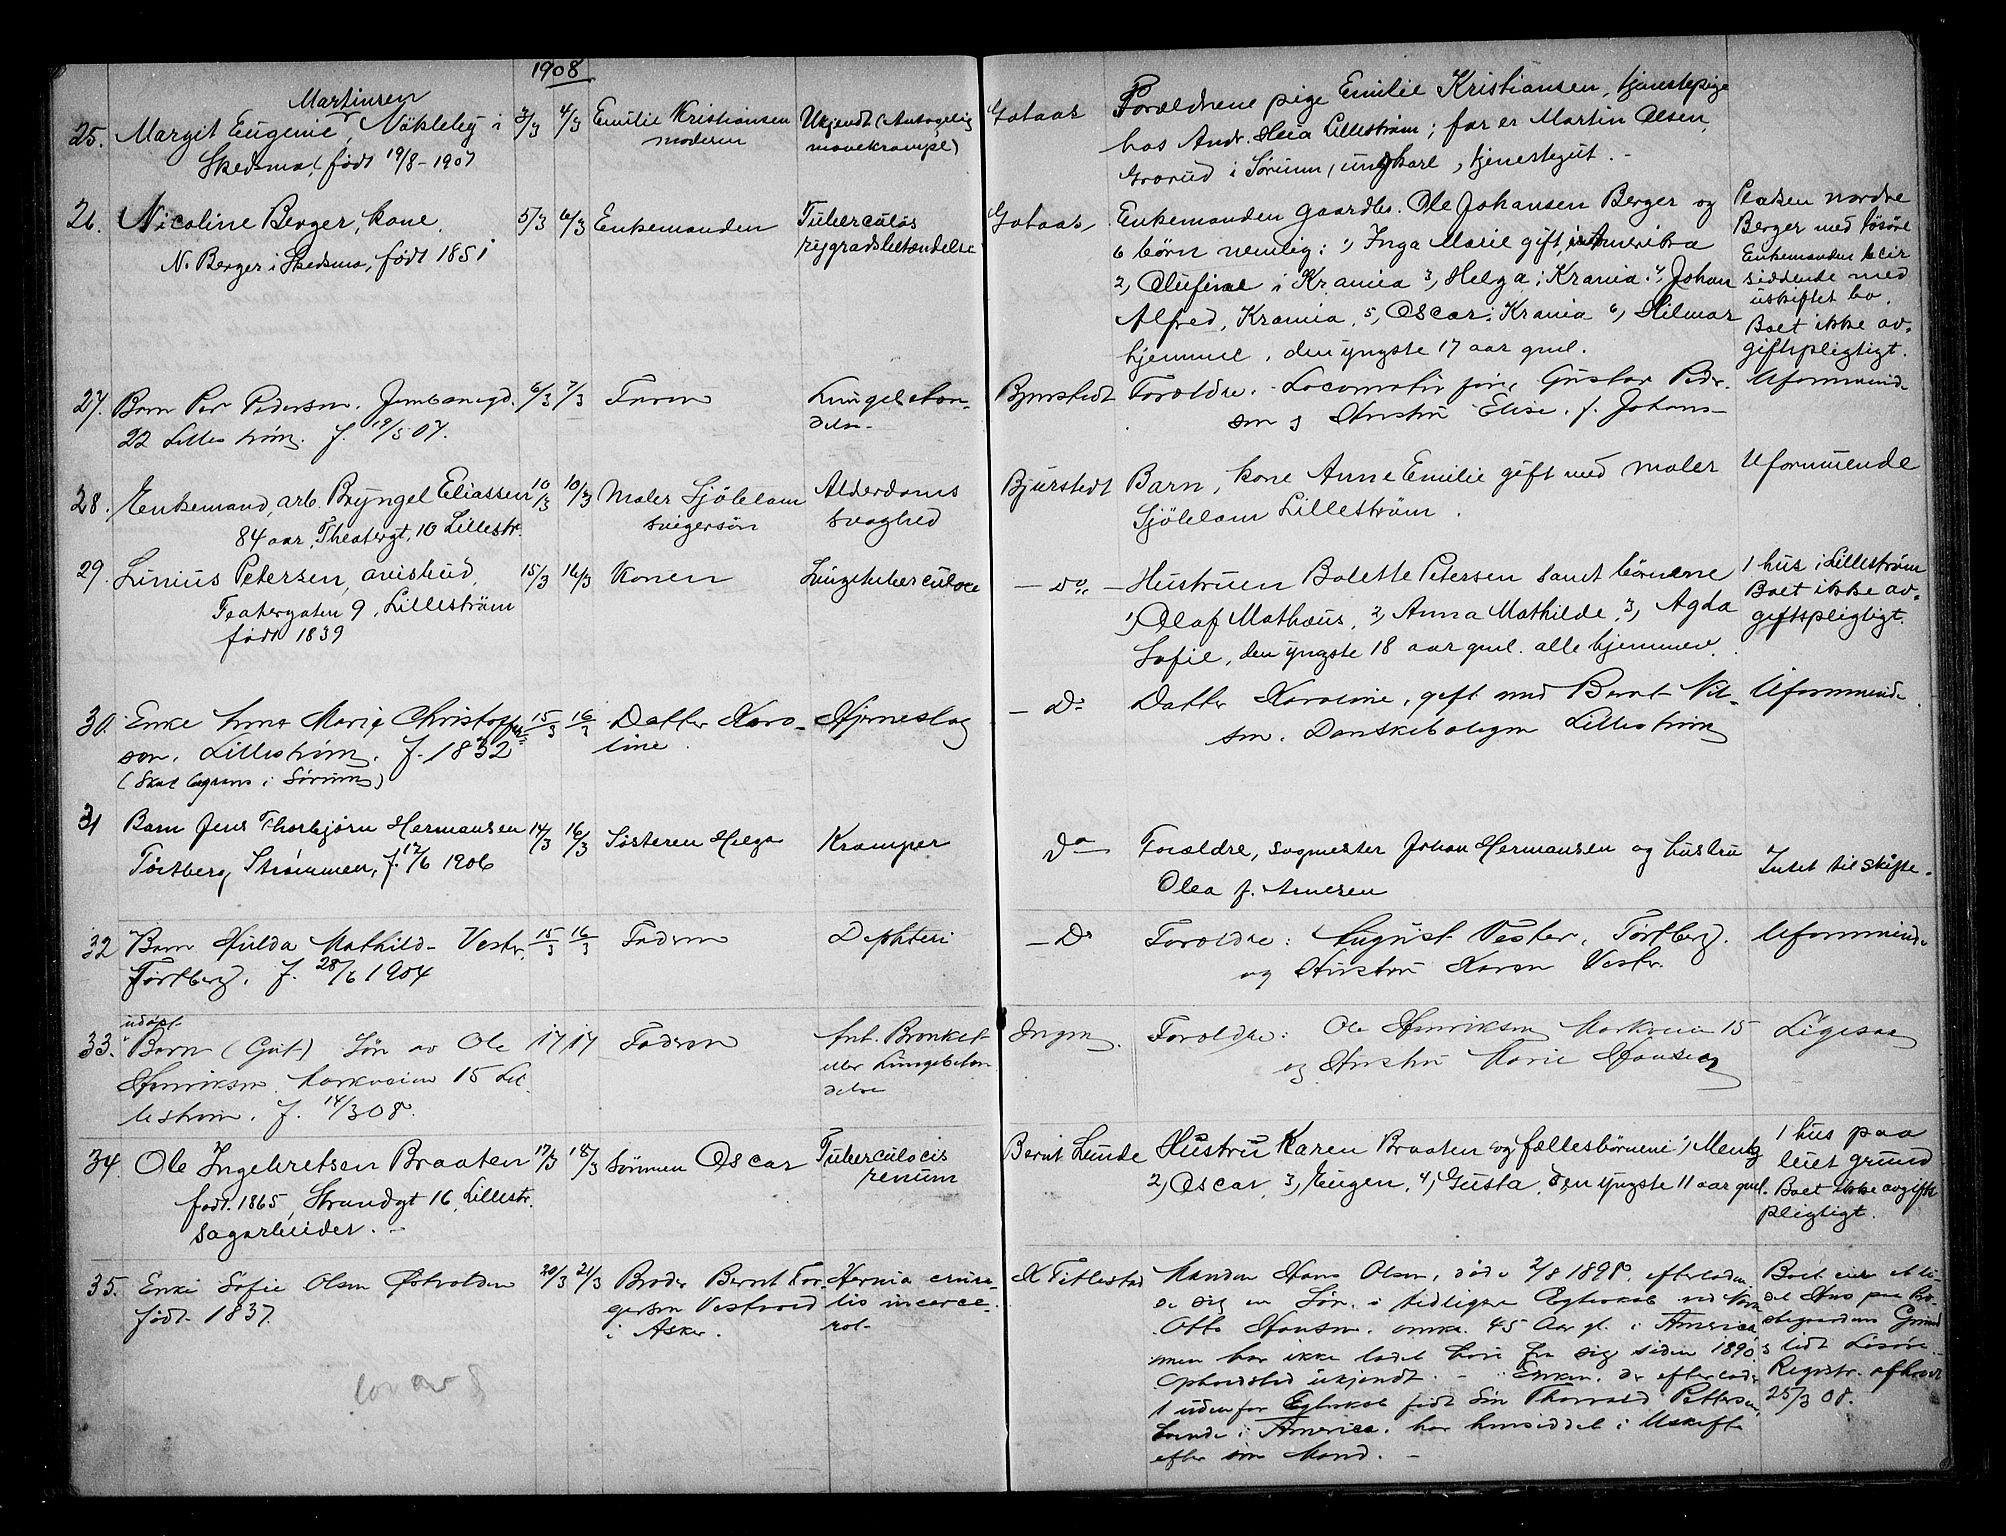 1908
25. Margit Eugenie Martinsen, Nökleby i
Skedsmo, (født 19/8-1907
3/3 4/3
Emilie Kristiansen
moderen
Ukjendt (Antagelig
mavekrampe)
Gotaas
Forældrene pige Emilie Kristiansen, tjenestepige
hos Andr. Heia Lillestrøm; far er Martin Olsen,
i Sørum, ungkarl, tjenestegut. -
26. Nicoline Berger, kone.
N. Berger i Skedsmo, født 1851
5/3 6/3
Enkemanden
Tuberculøs
rygradsbetændelse
Gotaas,
Enkemanden gaardbr. Ole Johansen Berger og
6 børn nemlig: 1, Inga Marie gift, i Amerika
2, Olufine i Krania 3, Helga i Krania. 4, Johan
Alfred, Krania, 5, Oscar i Krania 6, Hilmar
hjemme, den yngste 17 aar gml.
Pladsen nordre
Berger med løsøre
Enkemanden blir
siddende med
uskiftet bo.
Boet ikke av-
giftspligtigt.
27. Barn Per Pedersen. Jernbanegd.
22 Lillestrøm. f. 19/5 07.
6/3 7/3
Faren
Lungebeten-
delse
Bjurstedt
Forældre. Locomotiv Gustav Peder-
sen og Hustru Elise. f. Johans-
Uformuende
28. Enkemand, arb. Bryngel Eliassen
84 aar, Theatergt. 10 Lillestr.
10/3 10/3
Maler Sjöblom
svigersøn
Alderdoms
svaghed
Bjurstedt
Barn, kone Anne Emilie gift med maler
Sjöblom Lillestrøm.
Uformuende
29. Linius Petersen, avisbud,
Teatergaten 9, Lillestrøm
født 1839
15/3 16/3
Konen
Lungetuberculoce
- do -
Hustruen Bolette Petersen samt børnene
1, Olaf Mathæus, 2, Anna Mathilde, 3, Agda
Sofie, den yngste 18 aar gml. alle hjemmev.
1 hus i Lillestrøm
Boet ikke av-
giftspligtigt.
30. Enke Marie Christoffer-
sen. Lillestrøm. f. 1832
( i Sørum)
15/3 16/3
Datter Karo-
line.
Hjerneslag
- Do
Datter Karoline, gift med Bernt Nil-
sen. Danskeboligen Lillestrøm
Uformuende.
31 Barn Jens Thorbjørn Hermansen
Tørtberg, Strømmen, f. 12/6 1906
14/3 16/3
Søsteren Helga
Kramper
Do
Forældre, sagmester Johan Hermansen og hustru
Olea f. Arnesen
Intet til skifte.
32 Barn Hilda Mathilde Vester,
Tørtberg. f. 28/6 1904
15/3 16/3
Faderen
Dephteri
- Do
Forældre: August Vester, Tørtberg.
og Hustru Karen Vester.
Uformuende
33. udøpt
Barn (Gut) Søn av Ole
Henriksen. Markveien 15 Lil-
lestrøm. f. 14/3 08.
17 17
Faderen
Ant. Bronket
eller Lungebeten-
delse
Ingen.
Forældre: Ole Henriksen Markveien 15
og Hustru Marie Hansen
Ligesaa
34. Ole Ingebretsen Braaten
født. 1865, Strandgt 16, Lillestr.
Sagarbeider. -
17/3 18/3
Sønnen Oscar
Tuberculocis
renum
Bernt Lunde
Hustru Karen Braaten og fællesbørnene 1, Mentz
2, Oscar, 3, Eugen, 4, Gusta, den yngste 11 aar gml.
1 hus paa
leiet grund
Boet ikke avgifts
pligtigt.
35. Enke Sofie Olsen Østvolden
født 1837.
20/3 21/3
Broder Bernt Tor-
gersen Vestvold
i Asker.
Hernia crura-
lis incarce-
rat.
K Titlestad
Manden Hans Olsen, død 2/8 1898, efterladen-
de sig en Søn i tidligere Egteskab ved Navn
Otto Hansen. omkr. 45 Aar gl. i America,
men har ikke ladet høre fra sig siden 1890.
Opholdsted ukjendt. - Enken, der efterlader
1 udenfor Egteskab født Søn Thorvald Pettersen
Lunde i America. har hensiddet i Uskift
efter sin Mand. -
Boet eier et li-
det Hus paa
Grund
og lidt Løsøre.
Registr. afholdt
25/3 08.